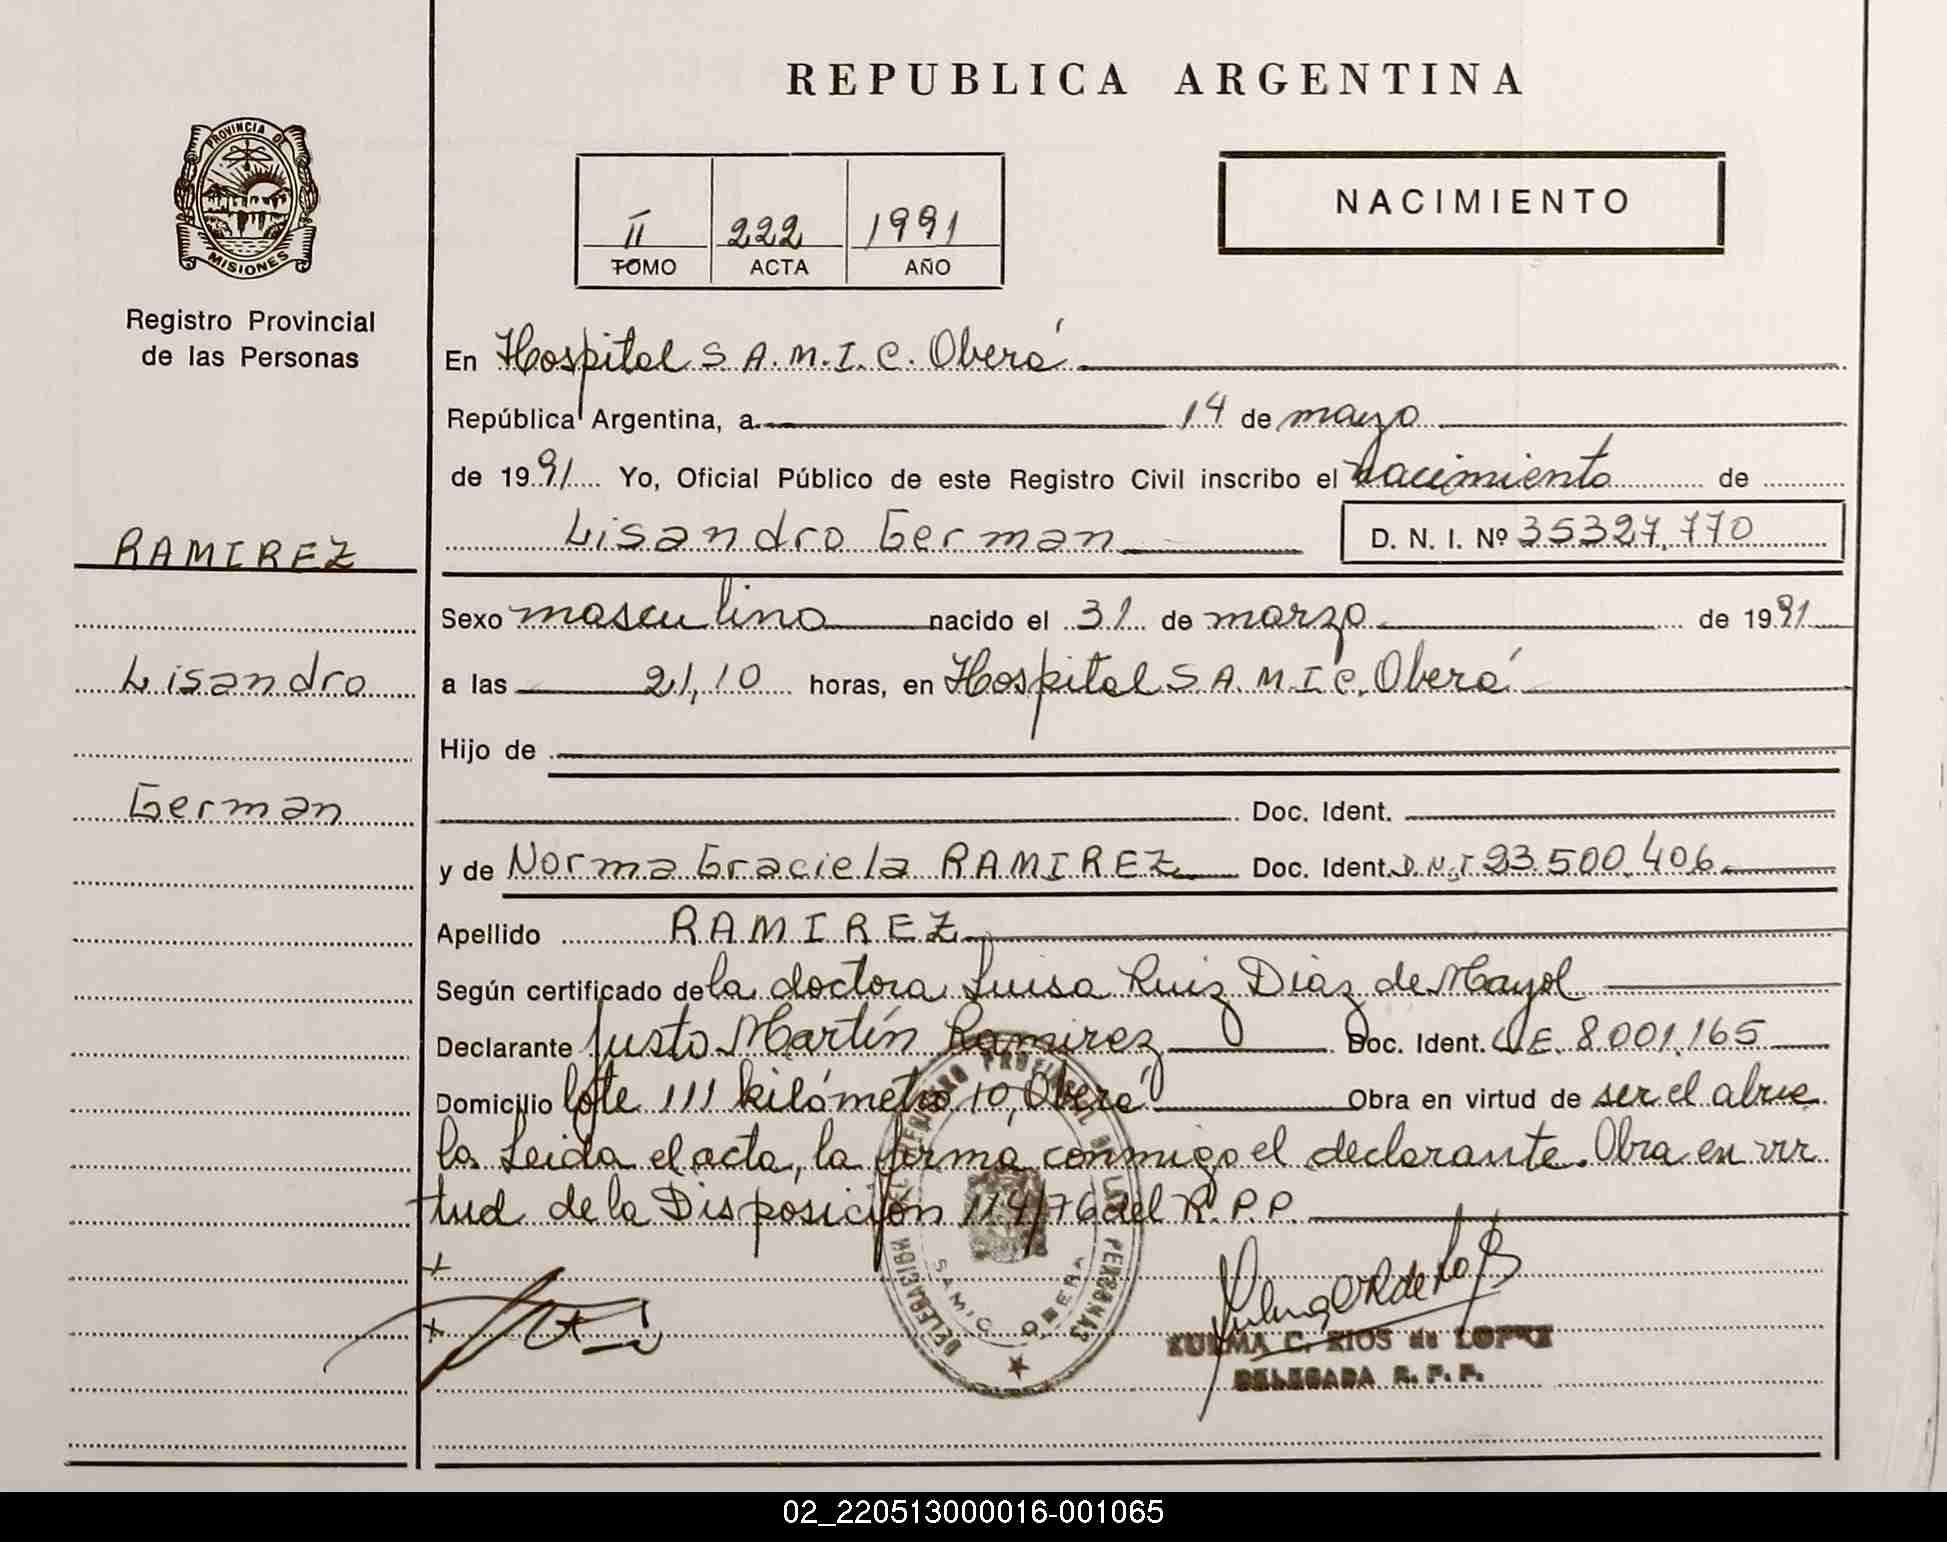 REPUBLICA ARGENTINA
PROVINCIA DE
MISIONES
Registro Provincial
de las Personas
II 222 1991
TOMO ACTA AÑO
NACIMIENTO
En Hospital S.A.M.I.C. Oberá
República Argentina, a 14 de mayo
de 1991 Yo, Oficial Público de este Registro Civil inscribo el nacimiento de
Lisandro German D. N. I. Nº 35327.770
RAMIREZ
Lisandro
German
Sexo masculino nacido el 31 de marzo de 1991
a las 21,10 horas, en Hospital S.A.M.I.C. Oberá
Hijo de
Doc. Ident.
y de Norma Graciela RAMIREZ Doc. Ident. D.N.I 23.500.406
Apellido RAMIREZ
Según certificado de la doctora Luisa Ruiz Diaz de Mayol
Declarante Justo Martín Ramirez Doc. Ident. L.E. 8.001.165
Domicilio lote 111 kilómetro 10, Oberá Obra en virtud de ser el abue
lo. Leida el acta, la firma conmigo el declarante. Obra en vir
tud de la Disposición 114/76 del R.P.P.
DELEGACION DEL REGISTRO PROVINCIAL DE LAS PERSONAS
SAMIC OBERA
ZULMA C. RIOS de LOPEZ
DELEGADA R. P. P.
02_220513000016-001065